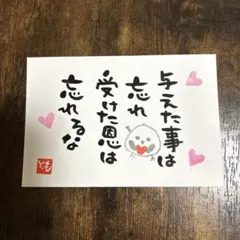 与えた事は
忘れ
受けた恩は
忘れるな
とも